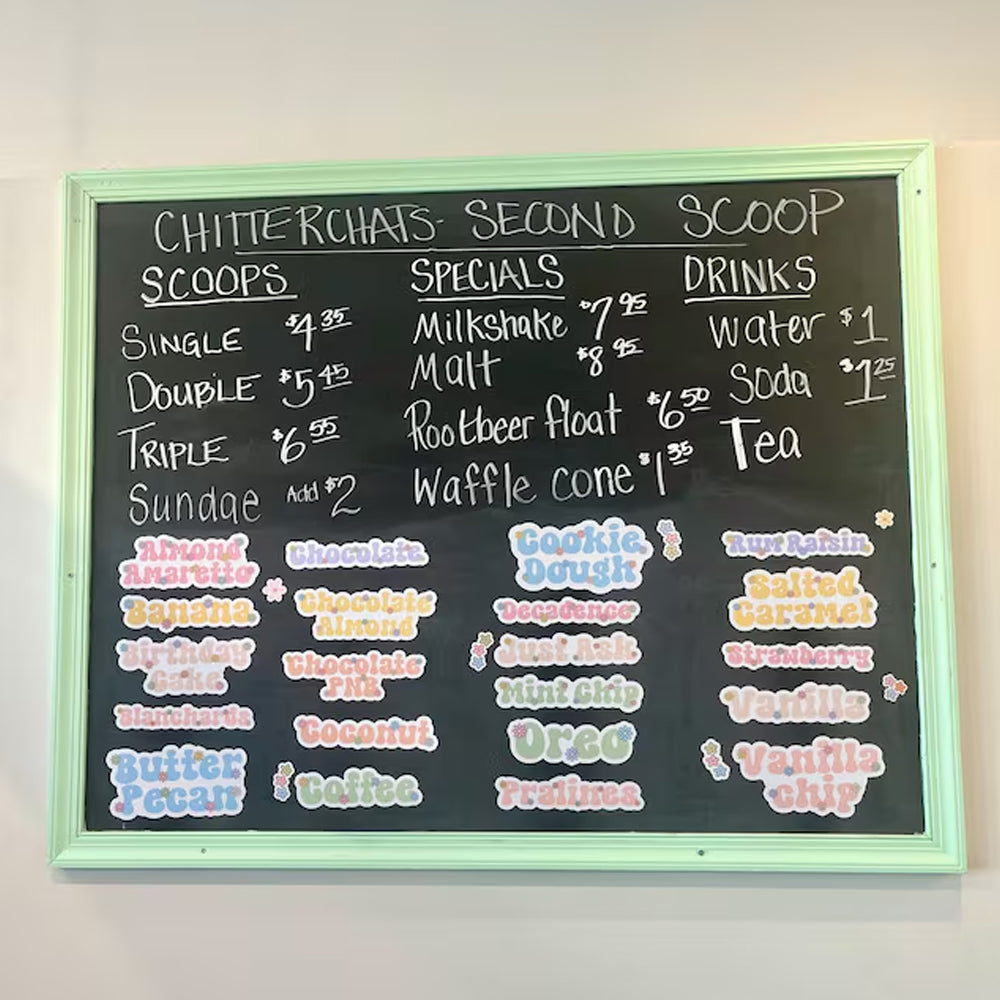 CHITTERCHATS- SECOND SCOOP
SCOOPS
SINGLE $4 35
DOUBLE $5 45
TRIPLE $6 55
Sundae Add $2
SPECIALS
Milkshake $7 95
Malt $8 95
Rootbeer float $6 50
Waffle cone $1 35
DRINKS
Water $1
Soda $1 25
Tea
Almond
Amaretto
Banana
Birthday
Cake
Blanchards
Butter
Pecan
Chocolate
Chocolate
Almond
Chocolate
PNB
Coconut
Coffee
Cookie
Dough
Decadence
Just Ask
Mint Chip
Oreo
Pralines
Rum Raisin
Salted
Caramel
Strawberry
Vanilla
Vanilla
chip